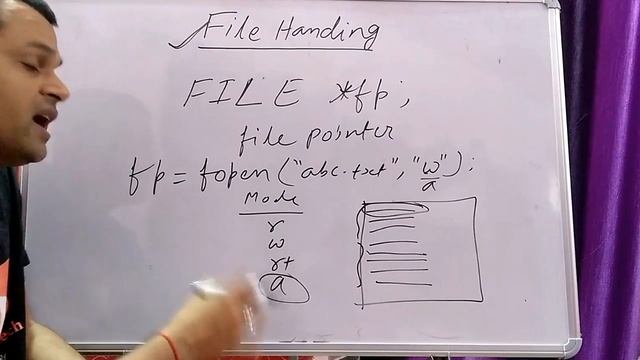 File Handing
FILE *fp;
file pointer
fp = fopen("abc.txt", "w");
a
Mode
r
w
r+
a